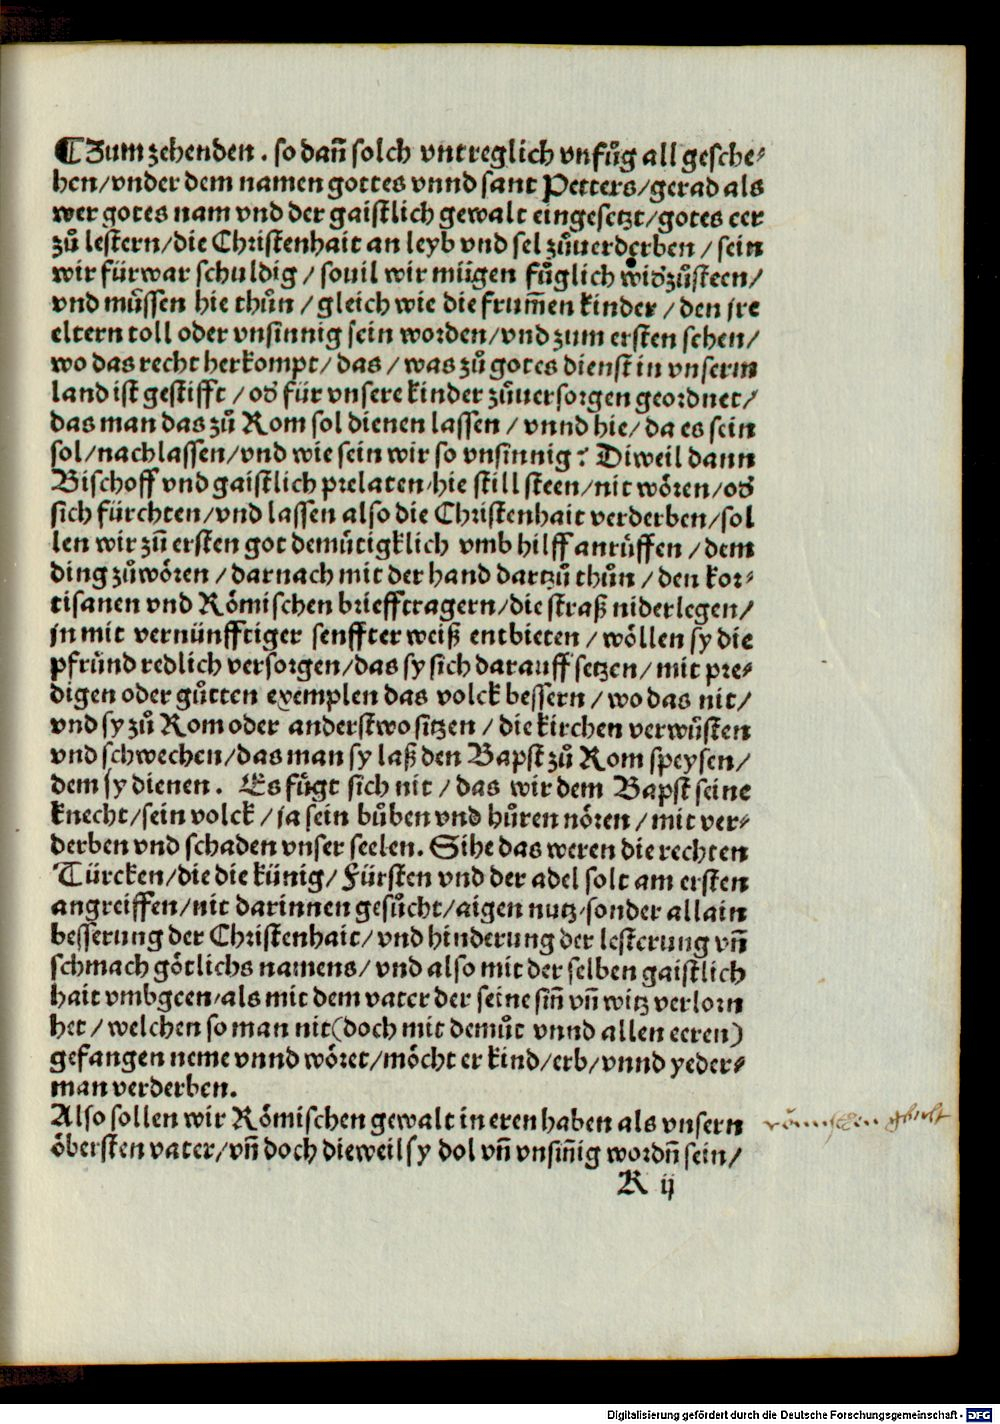 ¶Zum zehenden . so dañ solch vntreglich vnfůg all gesche⸗
hen/vnder dem namen gottes vnnd sant Petters/gerad als
wer gotes nam vnd der gaistlich gewalt eingesetzt/gotes eer
zů lestern/die Christenhait an leyb vnd sel zůuerderben / sein
wir fürwar schuldig / souil wir mügen fůglich widzůsteen/
vnd můssen hie thůn / gleich wie die frum̃en kinder / den jre
eltern toll oder vnsinnig sein worden/vnd zum ersten sehen/
wo das recht herkompt/ das / was zů gotes dienst in vnserm
land ist gestifft / od für vnsere kinder zůuersorgen geordnet/
das man das zů Rom sol dienen lassen / vnnd hie/ da es sein
sol/nachlassen/vnd wie sein wir so vnsinnig? Diweil dann
Bischoff vnd gaistlich prelaten/hie still steen/nit wören/od
sich fürchten/vnd lassen also die Christenhait verderben/sol
len wir zů ersten got demůtigklich vmb hilff anrůffen / dem
ding zůwören / darnach mit der hand dartzů thůn / den kor⸗
tisanen vnd Römischen briefftragern/die straß niderlegen/
jn mit vernünfftiger senffter weiß entbieten / wöllen sy die
pfründ redlich versorgen/das sy sich darauff setzen/ mit pre⸗
digen oder gůtten exemplen das volck bessern / wo das nit/
vnd sy zů Rom oder anderstwo sitzen / die kirchen verwůsten
vnd schwechen/das man sy laß den Bapst zů Rom speysen/
dem sy dienen. Es fůgt sich nit / das wir dem Bapst seine
knecht/sein volck / ja sein bůben vnd hůren nören / mit ver⸗
derben vnd schaden vnser seelen. Sihe das weren die rechten
Türcken/die die künig/ Fürsten vnd der adel solt am ersten
angreiffen/nit darinnen gesůcht/aigen nutz/sonder allain
besserung der Christenhait/ vnd hinderung der lesterung vñ
schmach götlichs namens/ vnd also mit der selben gaistlich
hait vmbgeen/als mit dem vater der seine siñ vñ witz verlorn
het / welchen so man nit(doch mit demůt vnnd allen eeren)
gefangen neme vnnd wöret/möcht er kind/erb/vnnd yeder⸗
man verderben.
Also sollen wir Römischen gewalt in eren haben als vnsern
öbersten vater/vñ doch dieweil sy dol vñ vnsiñig wordñ sein/
R ij
römischen gewalt
Digitalisierung gefördert durch die Deutsche Forschungsgemeinschaft - DFG